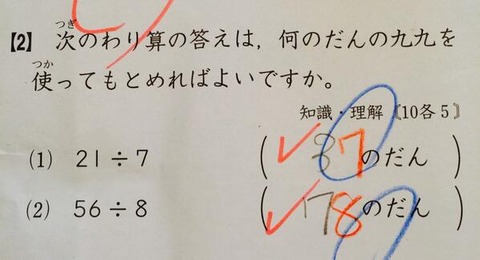 【2】 次のわり算の答えは，何のだんの九九を
使ってもとめればよいですか。
知識・理解〔10各5〕
(1) 21÷7 (37のだん)
(2) 56÷8 (178のだん)